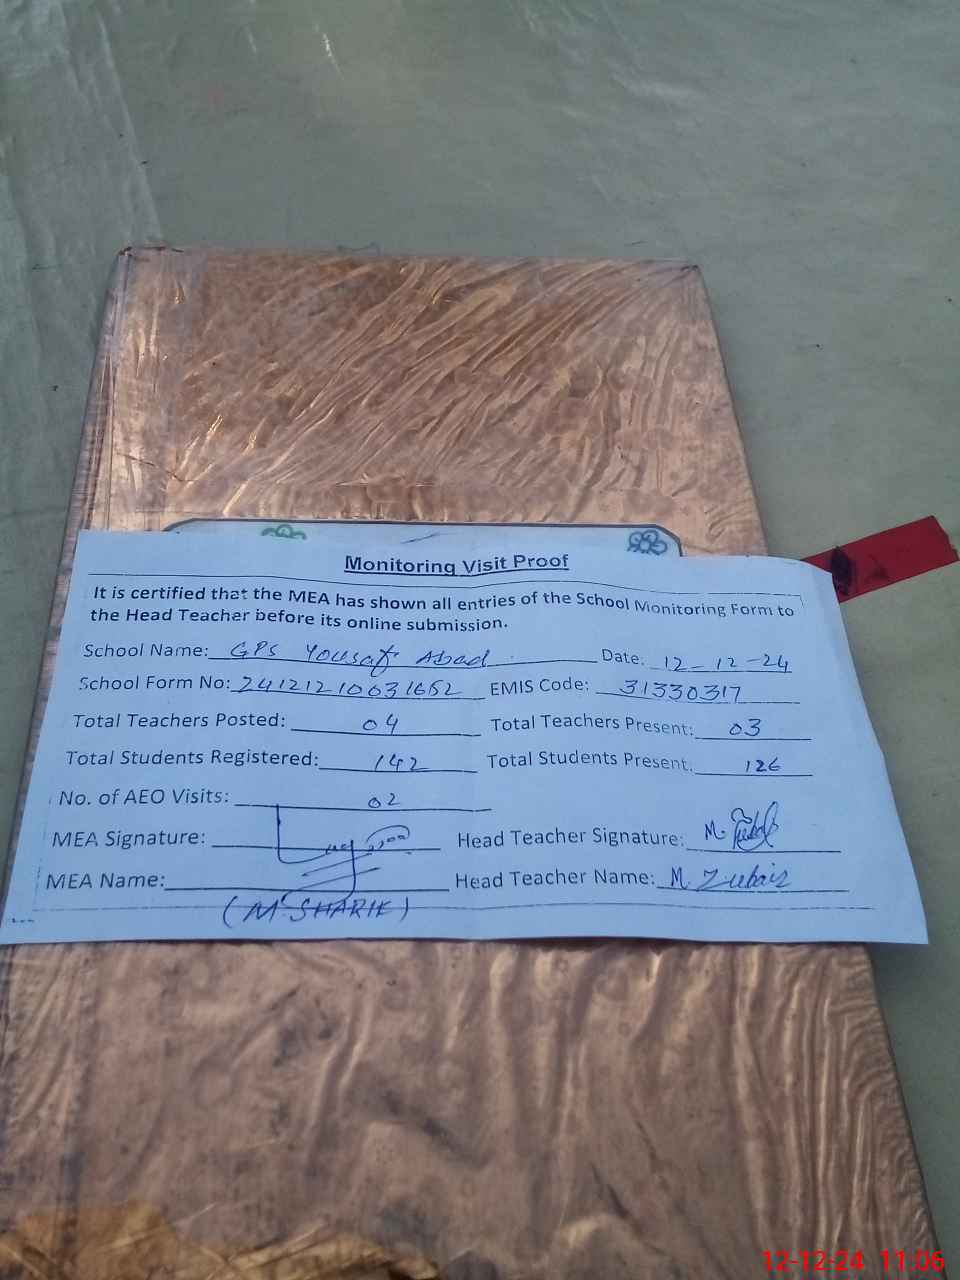 Monitoring Visit Proof
It is certified that the MEA has shown all entries of the School Monitoring Form to
the Head Teacher before its online submission.
School Name: GPS Yousaf Abad Date: 12-12-24
School Form No: 24121210031652 EMIS Code: 31330317
Total Teachers Posted: 04 Total Teachers Present: 03
Total Students Registered: 142 Total Students Present: 126
No. of AEO Visits: 02
MEA Signature: Head Teacher Signature: M.
MEA Name: Head Teacher Name: M. Zubair
(M. SHARIF)
12-12-24 11:06